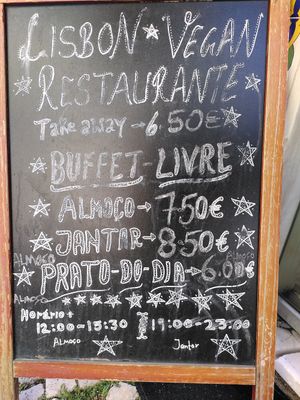 LISBON VEGAN
RESTAURANTE
Take away → 6.50€
BUFFET-LIVRE
ALMOÇO → 7.50€
JANTAR → 8.50€
ALMOÇO
PRATO-DO-DIA → 6.00€
ALMOÇO
ALMOÇO
Horário +
12:00-15:30 19:00-23:00
Almoço Jantar